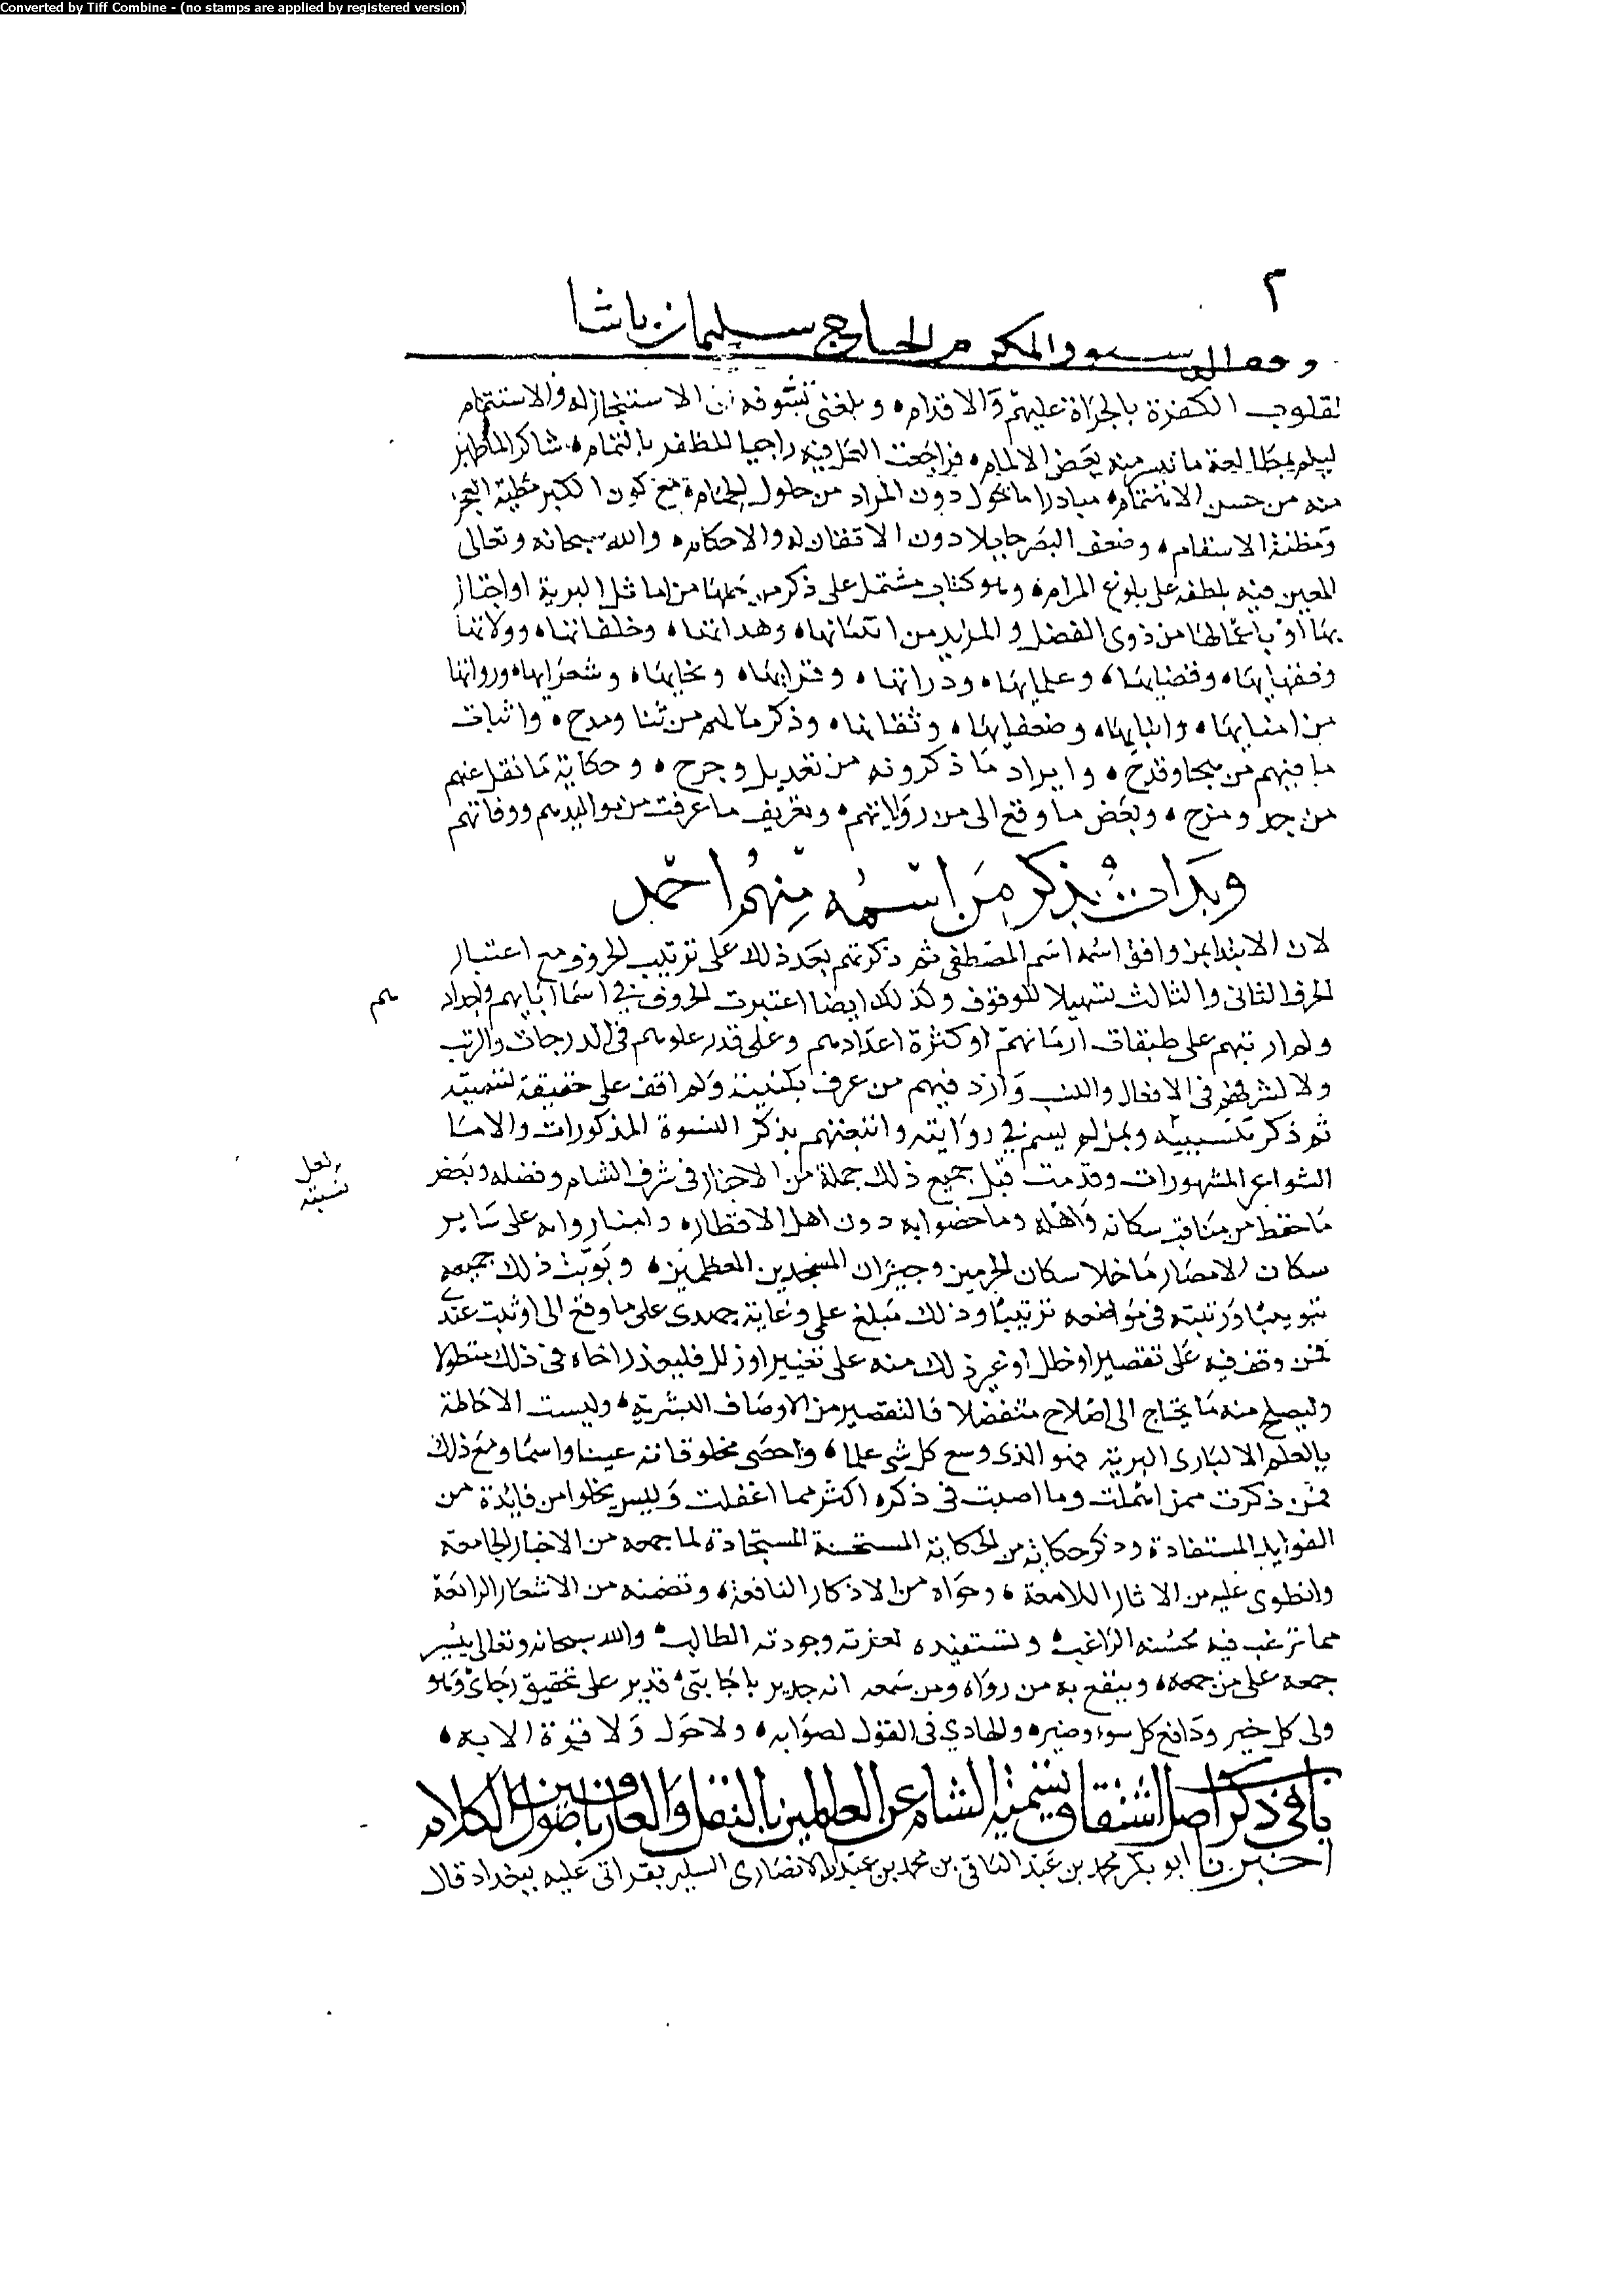 Converted by Tiff Combine - (no stamps are applied by registered version)
٢
وقف الدستور المكرم الحاج سليمان باشا
لقلوب الكفرة بالجراة عليهم والاقدام وبلغني تشوفه الى الاستنجاز له والاستتمام
ليلم بمطالعة ما تيسر منه بعض الالمام فراجعت العمل فيه راجيا للظفر بالتمام شاكرا لما ظهر
منه من حسن الاهتمام مبادرا ما يحول دون المراد من حلول الحمام مع كون الكبر مظنة العجز
ومظنة الاسقام وضعف البصر حايلا دون الاتقان له والاحكام والله سبحانه وتعالى
المعين فيه بلطفه على بلوغ المرام وهو كتاب مشتمل على ذكر من حلها من اماثل البرية او اجتاز
بها او باعمالها من ذوي الفضل والمزيد من انبيائها وهداتها وخلفائها وولاتها
وفقهايها وقضايها وعلمايها ودراتها وقرايها ونحايها وشعرايها ورواتها
من امنايها وابنايها وضعفايها وثقاتها وذكر ما لهم من ثنا ومدح واثبات
ما فيهم من هجا وقدح وايراد ما ذكروه من تعديل وجرح وحكاية ما نقل عنهم
من جد ومزح وبعض ما وقع الي من رواياتهم وتعريف ما عرفت من مواليدهم ووفاتهم
وبدات بذكر من اسمه منهم احمد
لان الابتدا بمن وافق اسمه اسم المصطفى ثم ذكرتهم بعد ذلك على ترتيب الحروف مع اعتبار
الحرف الثاني والثالث تسهيلا للوقوف وكذلك ايضا اعتبرت الحروف في اسما آبايهم واجداد
هم
ولم ارتبهم على طبقات ازمانهم او كثرة اعدادهم وعلى قدر علوهم في الدرجات والرتب
ولا لشرفهم في الافعال والنسب واردفهم من عرف بكنيته ولم اقف على حقيقة تسميته
ثم ذكر تنسيبيه وبمن لم يسم في روايته واتبعتهم بذكر النسوة المذكورات والاما
لعل
نسبته
الشواعر المشهورات وقدمت قبل جميع ذلك جملة من الاخبار في شرف الشام وفضله وبعض
ما حفظ من مناقب سكانه واهله وما خصوا به دون اهل الاقطار وامتازوا به على ساير
سكان الامصار ما خلا سكان الحرمين وجيران المسجدين المعظمين وبوبت ذلك جميعه
تبويبا ورتبته في مواضعه ترتيبا وذلك مبلغ علمي وغاية جهدي على ما وقع الي او ثبت عندي
فمن وقف فيه على تقصير او خلل او غير ذلك منه على تغيير او زلل فليعذر اخاه في ذلك متطولا
وليصلح منه ما يحتاج الى اصلاح متفضلا فالتقصير من الاوصاف البشرية وليست الاحاطة
بالعلم الا لباري البرية فهو الذي وسع كل شي علما واحصى مخلوقاته عينا واسما ومع ذلك
فمن ذكرت ممن اهملت وما اصبت في ذكره اكثر مما اغفلت وليس يخلوا من فايدة من
الفوايد المستفادة وذكر حكاية من الحكاية المستحسنة المستجادة لما جمعه من الاخبار الجامعة
وانطوى عليه من الاثار اللامعة وحواه من الاذكار النافعة وتضمنه من الاشعار الرائعة
مما ترغب فيه لحسنه الراغب وتستفيده لعزته وجودته الطالب والله سبحانه وتعالى ييسر
جمعه على من جمعه وينفع به من رواه ومن سمعه انه جدير باجابتي قدير على تحقيق رجائي وهو
ولي كل خير ودافع كل سوء وضير والهادي في القول لصوابه ولا حول ولا قوة الا به
باب في ذكر اصل اشتقاق تسمية الشام عن العالمين بالنقل والعارفين باصول الكلام
اخبرنا ابو بكر محمد بن عبد الباقي بن محمد بن عبد الله الانصاري السلمي بقراتي عليه ببغداد قال